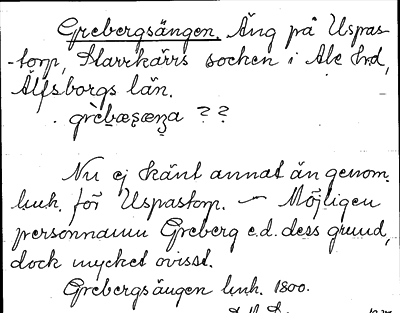 Grebergsängen. Äng på Uspas-
-torp, Starrkärrs socken i Ale hrd,
Älfsborgs län.
grèbæʂæŋa ??
Nu ej känt annat än genom
lmk. för Uspastorp. — Möjligen
personnamn Greberg e.d. dess grund,
dock mycket ovisst.
Grebergsängen lmk. 1800.